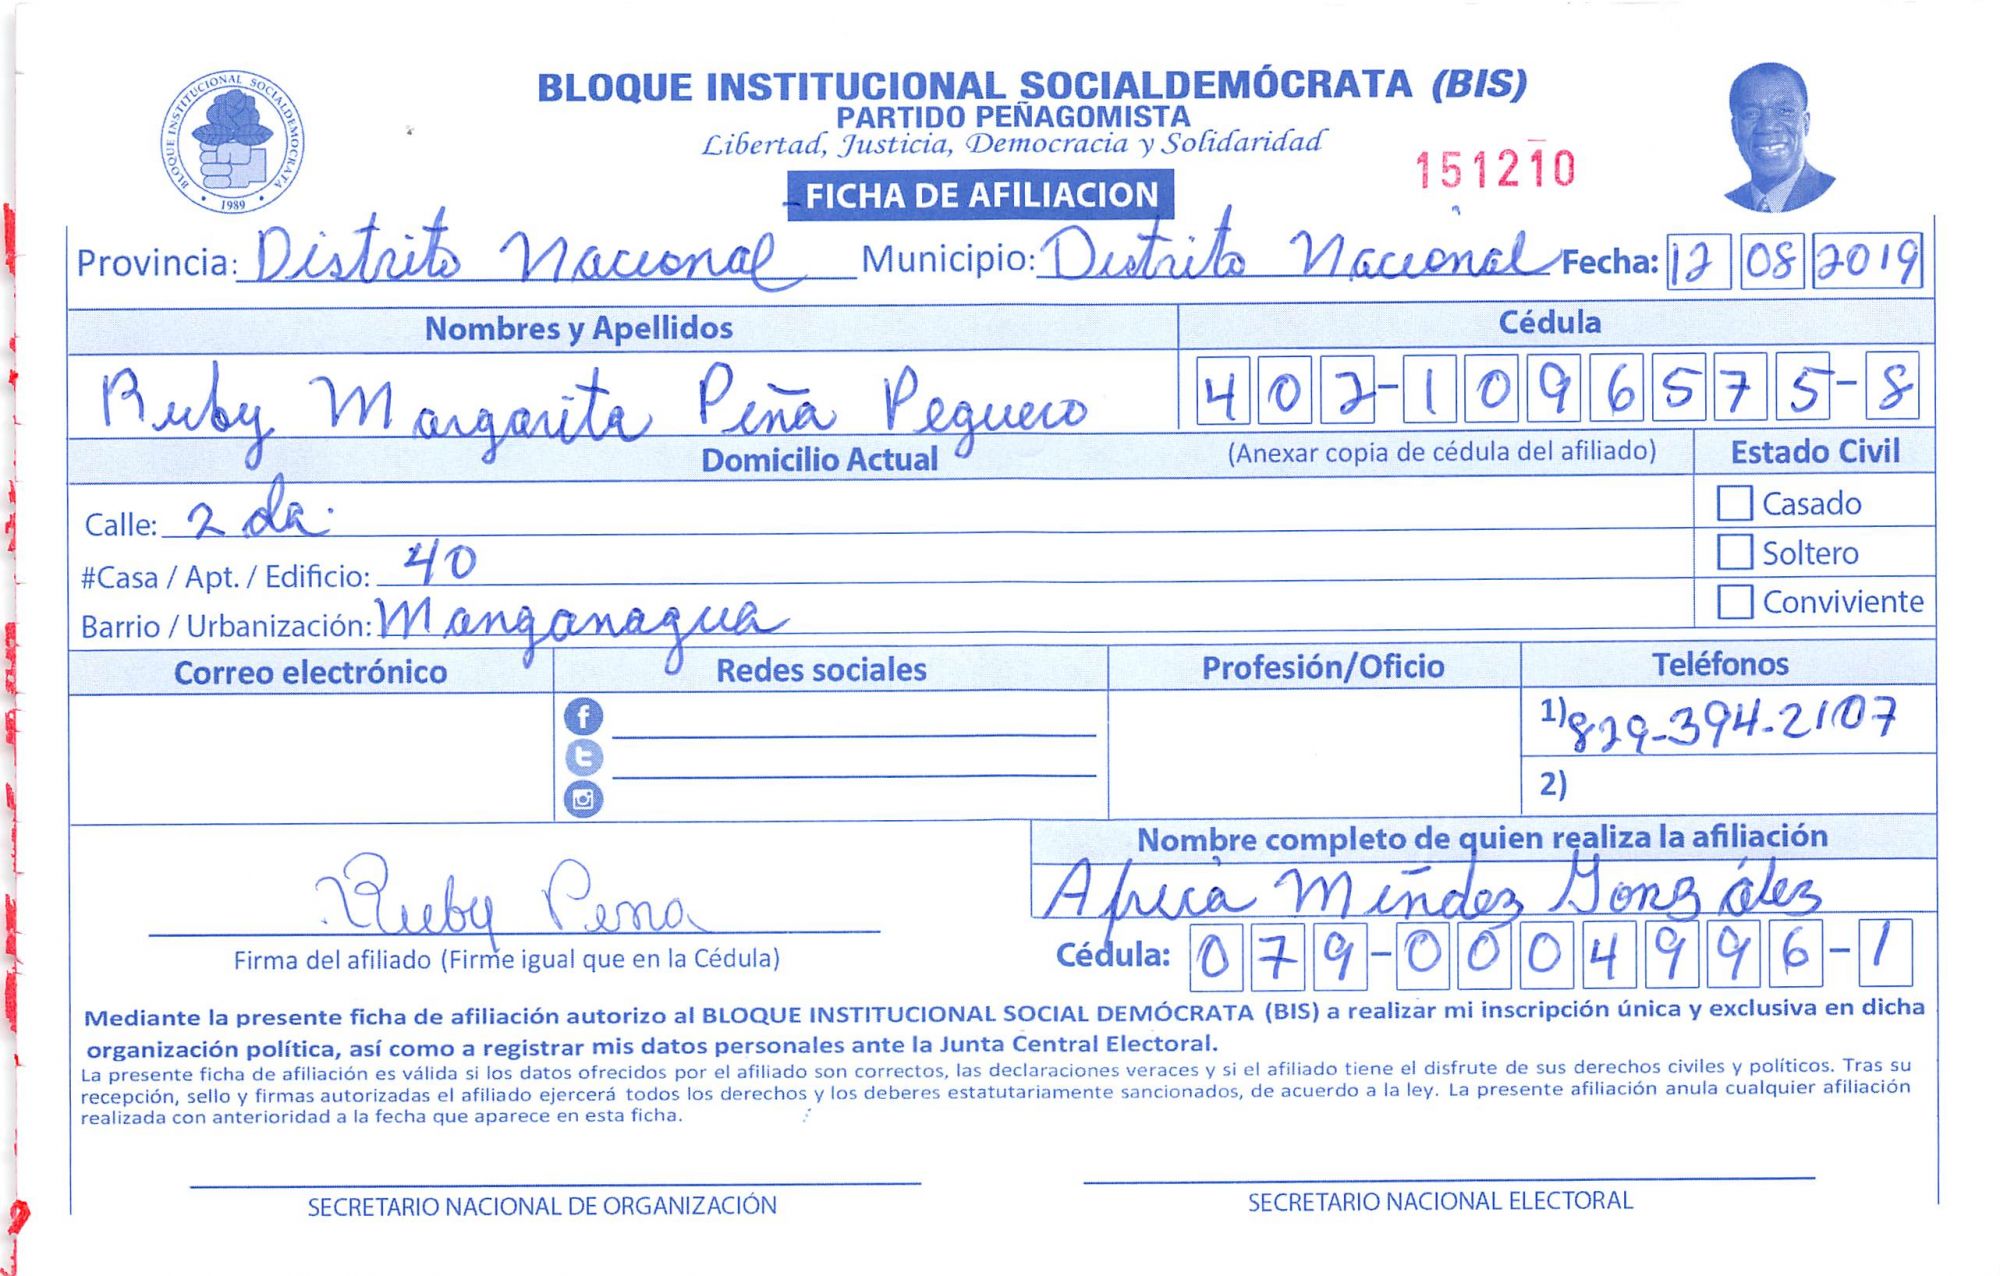 BLOQUE INSTITUCIONAL SOCIALDEMOCRATA
1989
BLOQUE INSTITUCIONAL SOCIALDEMÓCRATA (BIS)
PARTIDO PEÑAGOMISTA
Libertad, Justicia, Democracia y Solidaridad
151210
FICHA DE AFILIACION
Provincia: Distrito Nacional Municipio: Distrito Nacional Fecha: 12 08 2019
Nombres y Apellidos Cédula
Ruby Margarita Peña Peguero 402-1096575-8
Domicilio Actual (Anexar copia de cédula del afiliado) Estado Civil
Calle: 2 da. Casado
#Casa / Apt. / Edificio: 40 Soltero
Barrio / Urbanización: Manganagua Conviviente
Correo electrónico Redes sociales Profesión/Oficio Teléfonos
1) 829-394-2107
2)
Nombre completo de quien realiza la afiliación
Ruby Pena Africa Méndez González
Firma del afiliado (Firme igual que en la Cédula) Cédula: 079-0004996-1
Mediante la presente ficha de afiliación autorizo al BLOQUE INSTITUCIONAL SOCIAL DEMÓCRATA (BIS) a realizar mi inscripción única y exclusiva en dicha
organización política, así como a registrar mis datos personales ante la Junta Central Electoral.
La presente ficha de afiliación es válida si los datos ofrecidos por el afiliado son correctos, las declaraciones veraces y si el afiliado tiene el disfrute de sus derechos civiles y políticos. Tras su
recepción, sello y firmas autorizadas el afiliado ejercerá todos los derechos y los deberes estatutariamente sancionados, de acuerdo a la ley. La presente afiliación anula cualquier afiliación
realizada con anterioridad a la fecha que aparece en esta ficha.
SECRETARIO NACIONAL DE ORGANIZACIÓN SECRETARIO NACIONAL ELECTORAL